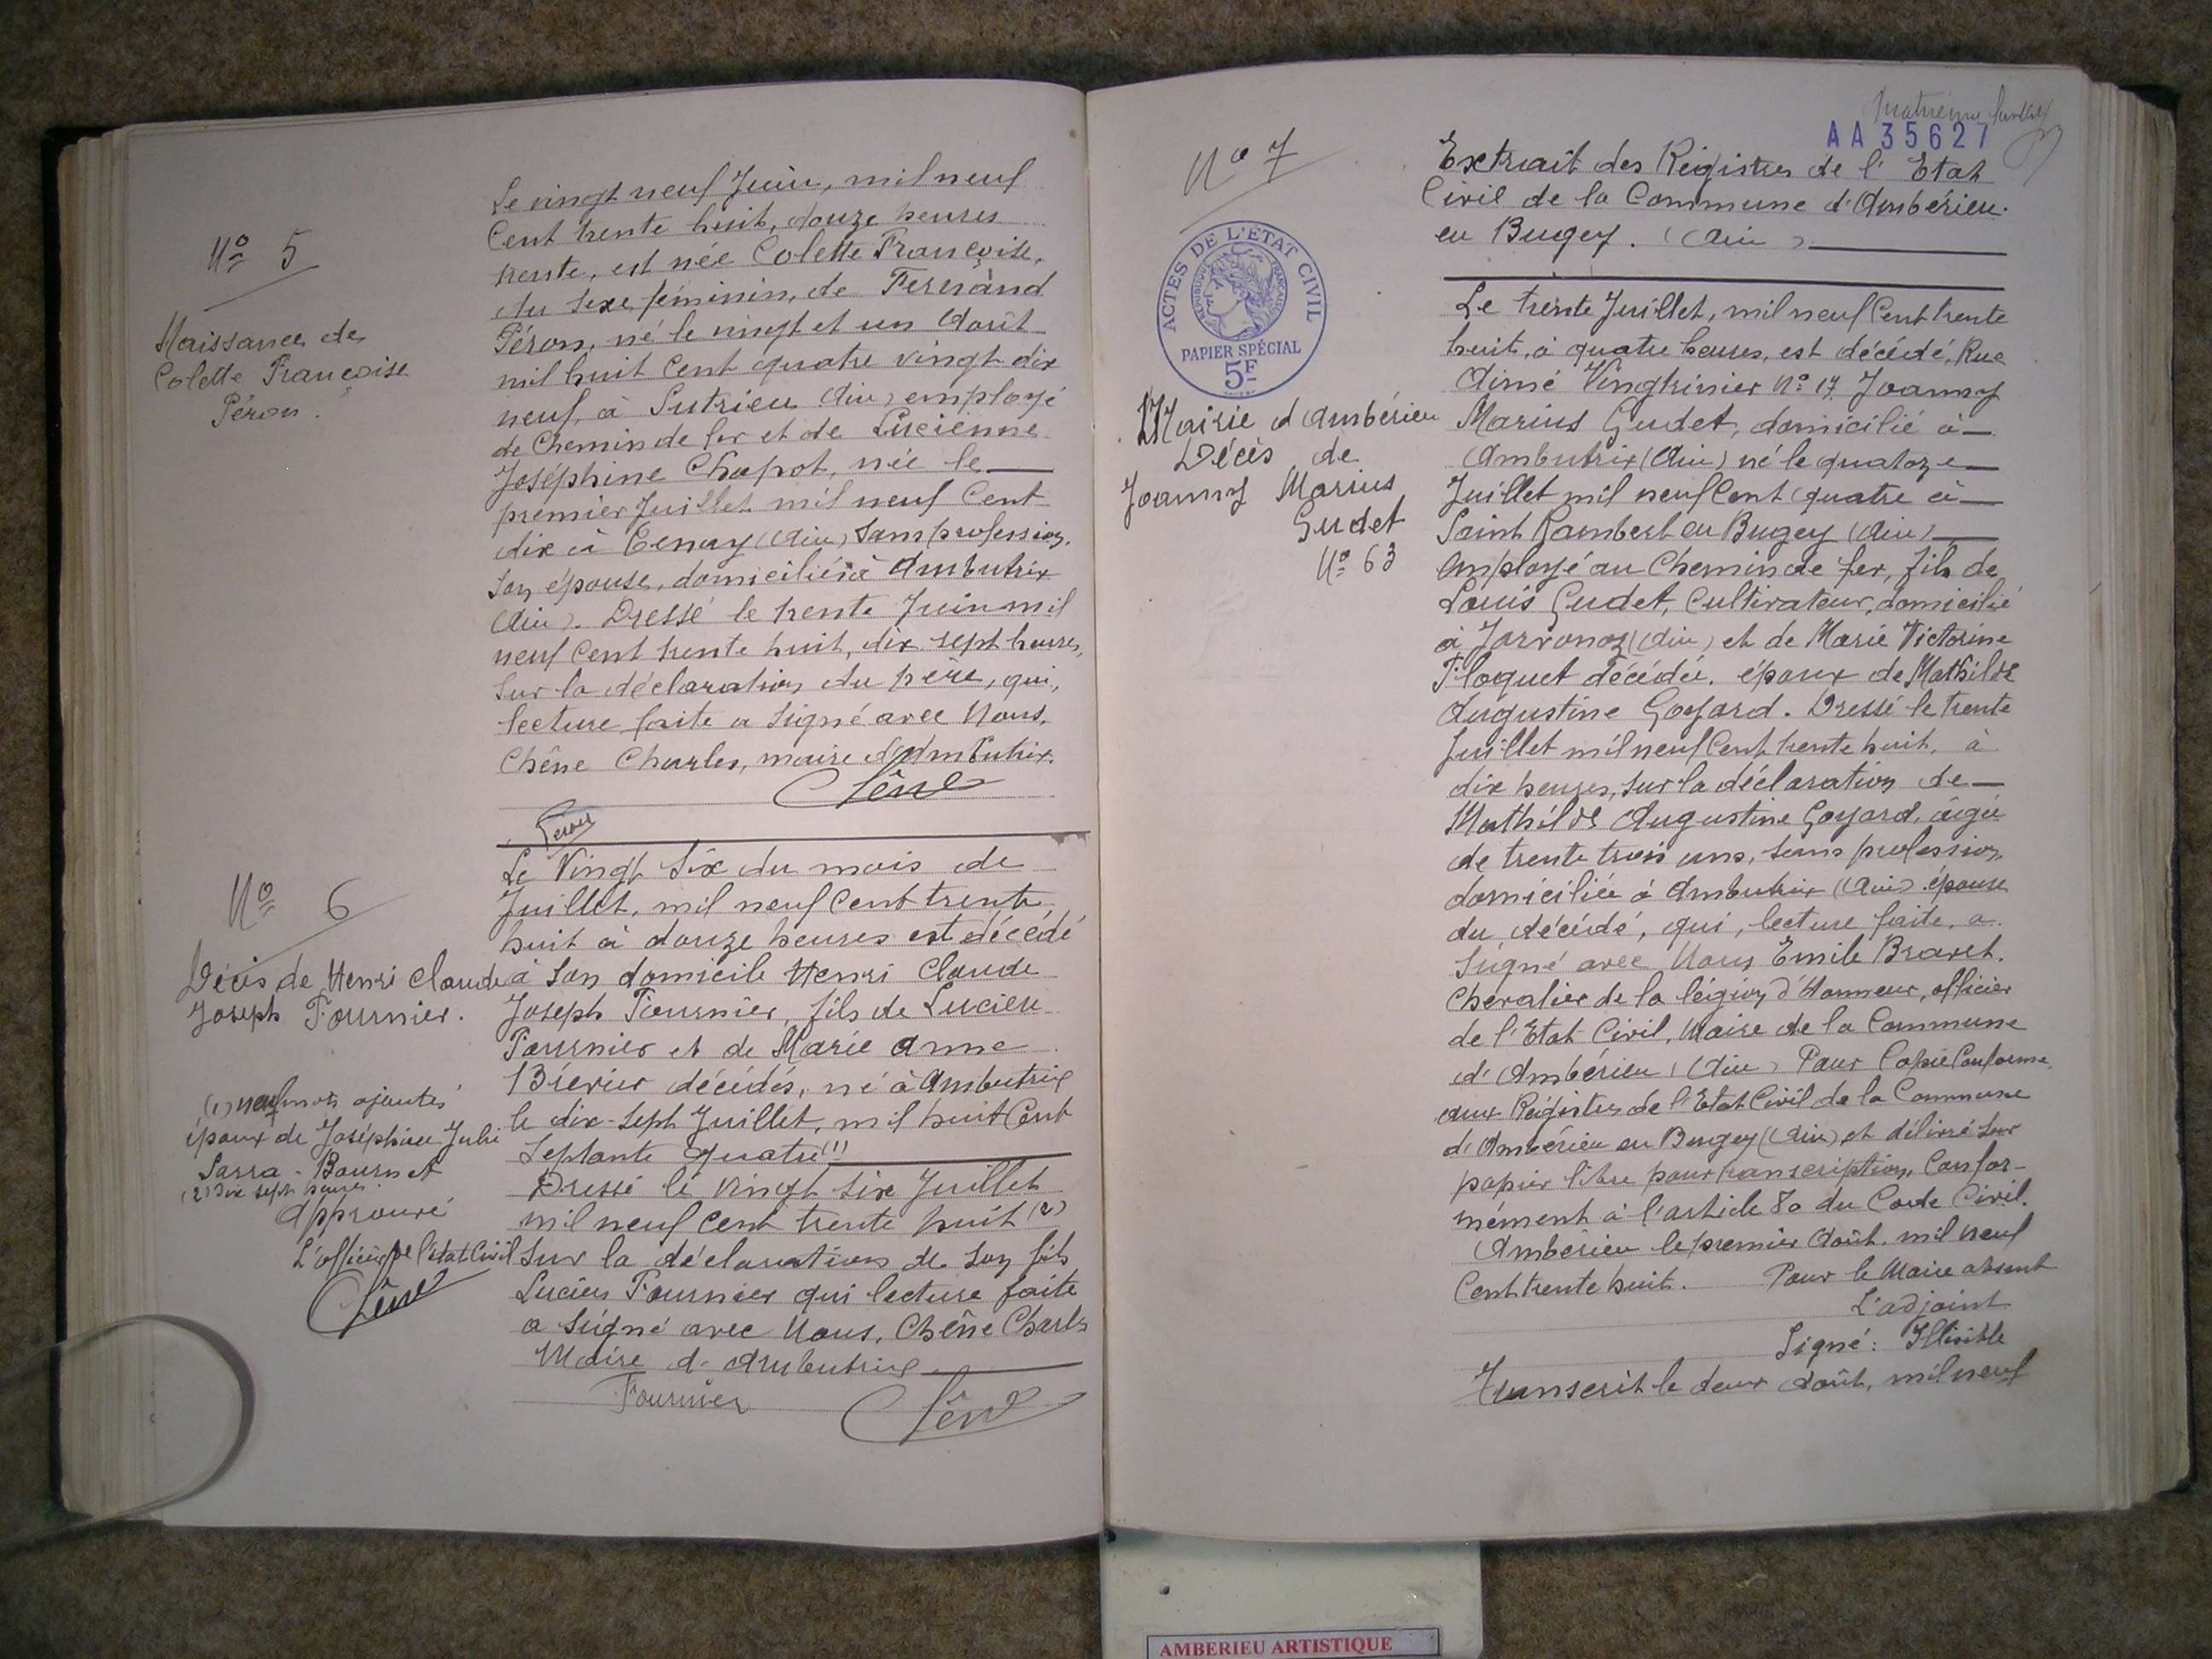 Nº 5
Naissance de
Colette Françoise
Péron.
Le vingt neuf Juin, mil neuf
Cent trente huit, douze heures
trente, est née Colette Françoise,
du sexe féminin, de Fernand
Péron, né le vingt et un Août
mil huit cent quatre vingt dix
neuf, à Sutrieu (Ain) employé
de Chemin de fer et de Lucienne
Joséphine Chapot, née le
premier Juillet mil neuf Cent
dix à Tenay (Ain) Sans profession,
son épouse, domiciliés à Ambutrix
(Ain). Dressé le trente Juin mil
neuf Cent trente huit, dix sept heures,
sur la déclaration du père, qui,
lecture faite a signé avec Nous,
Chêne Charles, maire d'Ambutrix.
Chêne
Peron
Nº 6
Décès de Henri Claude
Joseph Fournier.
(1) neuf mots ajoutés
époux de Joséphine Julie
Sarra-Bournet
(2) Dix sept heures
Approuvé
L'officier de l'état Civil
Chêne
Le Vingt Six du mois de
Juillet, mil neuf Cent trente
huit à douze heures est décédé
à son domicile Henri Claude
Joseph Fournier, fils de Lucien
Fournier et de Marie Anne
décédés, né à Ambutrix
le dix-sept Juillet, mil huit Cent
Septante quatre (1)
Dressé le vingt six Juillet
mil neuf cent trente huit (2)
Sur la déclaration de son fils
Lucien Fournier qui lecture faite
a signé avec Nous, Chêne Charles
Maire d'Ambutrix
Fournier
Chêne
AA35627
Nº 7
ACTES DE L'ETAT CIVIL
REPUBLIQUE FRANÇAISE
PAPIER SPÉCIAL
5F
Mairie d'Ambérieu
Décès de
Joanny Marius
Gudet
Nº 63
Extrait des Régistres de l'Etat
Civil de la Commune d'Ambérieu
en Bugey. (Ain)
Le trente Juillet, mil neuf Cent trente
huit, à quatre heures, est décédé, Rue
Aimé Vingtrinier Nº 17 Joanny
Marius Gudet, domicilié à
Ambutrix (Ain) né le quatorze
Juillet mil neuf Cent quatre à
Saint Rambert en Bugey (Ain)
Employé au Chemin de fer, fils de
Louis Gudet, Cultivateur, domicilié
à (Ain) et de Marie Victorine
Floquet décédée. époux de Mathilde
Augustine Goyard. Dressé le trente
Juillet mil neuf Cent trente huit, à
dix heures, sur la déclaration de
Mathilde Augustine Goyard, âgée
de trente trois ans, sans profession,
domiciliée à Ambutrix (Ain) épouse
du décédé, qui, lecture faite, a
Signé avec Nous Emile Bravet.
Chevalier de la légion d'Honneur, officier
de l'Etat Civil, Maire de la Commune
d'Ambérieu (Ain) Pour Copie Conforme
aux Régistres de l'Etat Civil de la Commune
d'Ambérieu en Bugey (Ain) et délivré sur
papier libre pour transcription, Confor-
mément à l'article 80 du Code Civil.
Ambérieu le premier Août. mil neuf
Cent trente huit. Pour le Maire absent
L'adjoint
Signé: Illisible
Transcrit le deux Août, mil neuf
AMBERIEU ARTISTIQUE